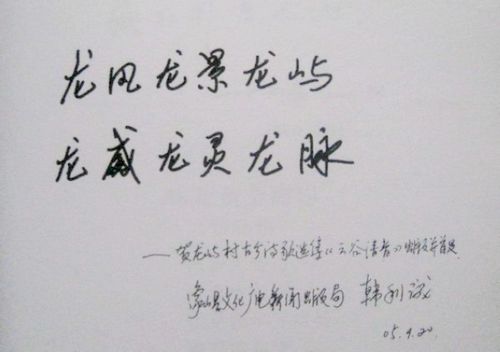 龙风龙景龙屿
龙威龙灵龙脉
——贺龙屿村古今诗歌选集《云谷清音》出版并首发
象山县文化广电新闻出版局 韩利诚
05.9.20.